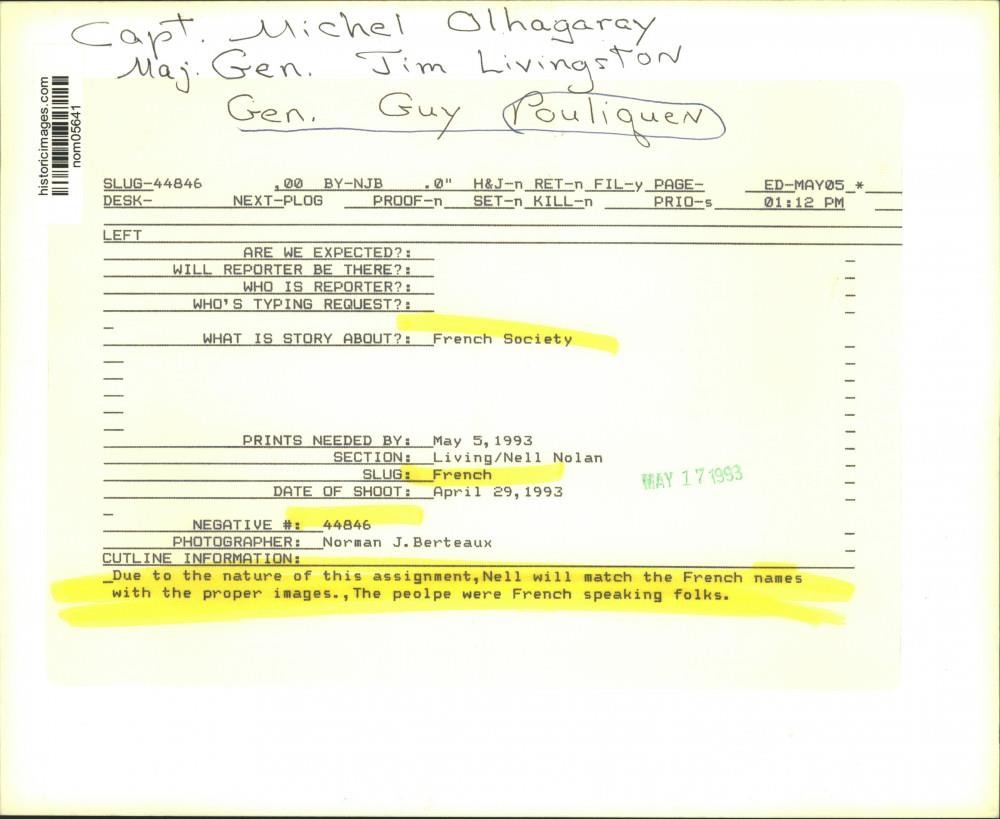 Capt. Michel Olhagaray
Maj. Gen. Jim Livingston
Gen. Guy Pouliquen
historicimages.com
nom05641
SLUG-44846 .00 BY-NJB .0" H&J-n RET-n FIL-y PAGE- ED-MAY05 *
DESK- NEXT-PLOG PROOF-n SET-n KILL-n PRIO-s 01:12 PM
LEFT
ARE WE EXPECTED?:
WILL REPORTER BE THERE?:
WHO IS REPORTER?:
WHO'S TYPING REQUEST?:
WHAT IS STORY ABOUT?: French Society
PRINTS NEEDED BY: May 5,1993
SECTION: Living/Nell Nolan
SLUG: French
DATE OF SHOOT: April 29,1993
MAY 17 1993
NEGATIVE #: 44846
PHOTOGRAPHER: Norman J.Berteaux
CUTLINE INFORMATION:
Due to the nature of this assignment,Nell will match the French names
with the proper images.,The peolpe were French speaking folks.